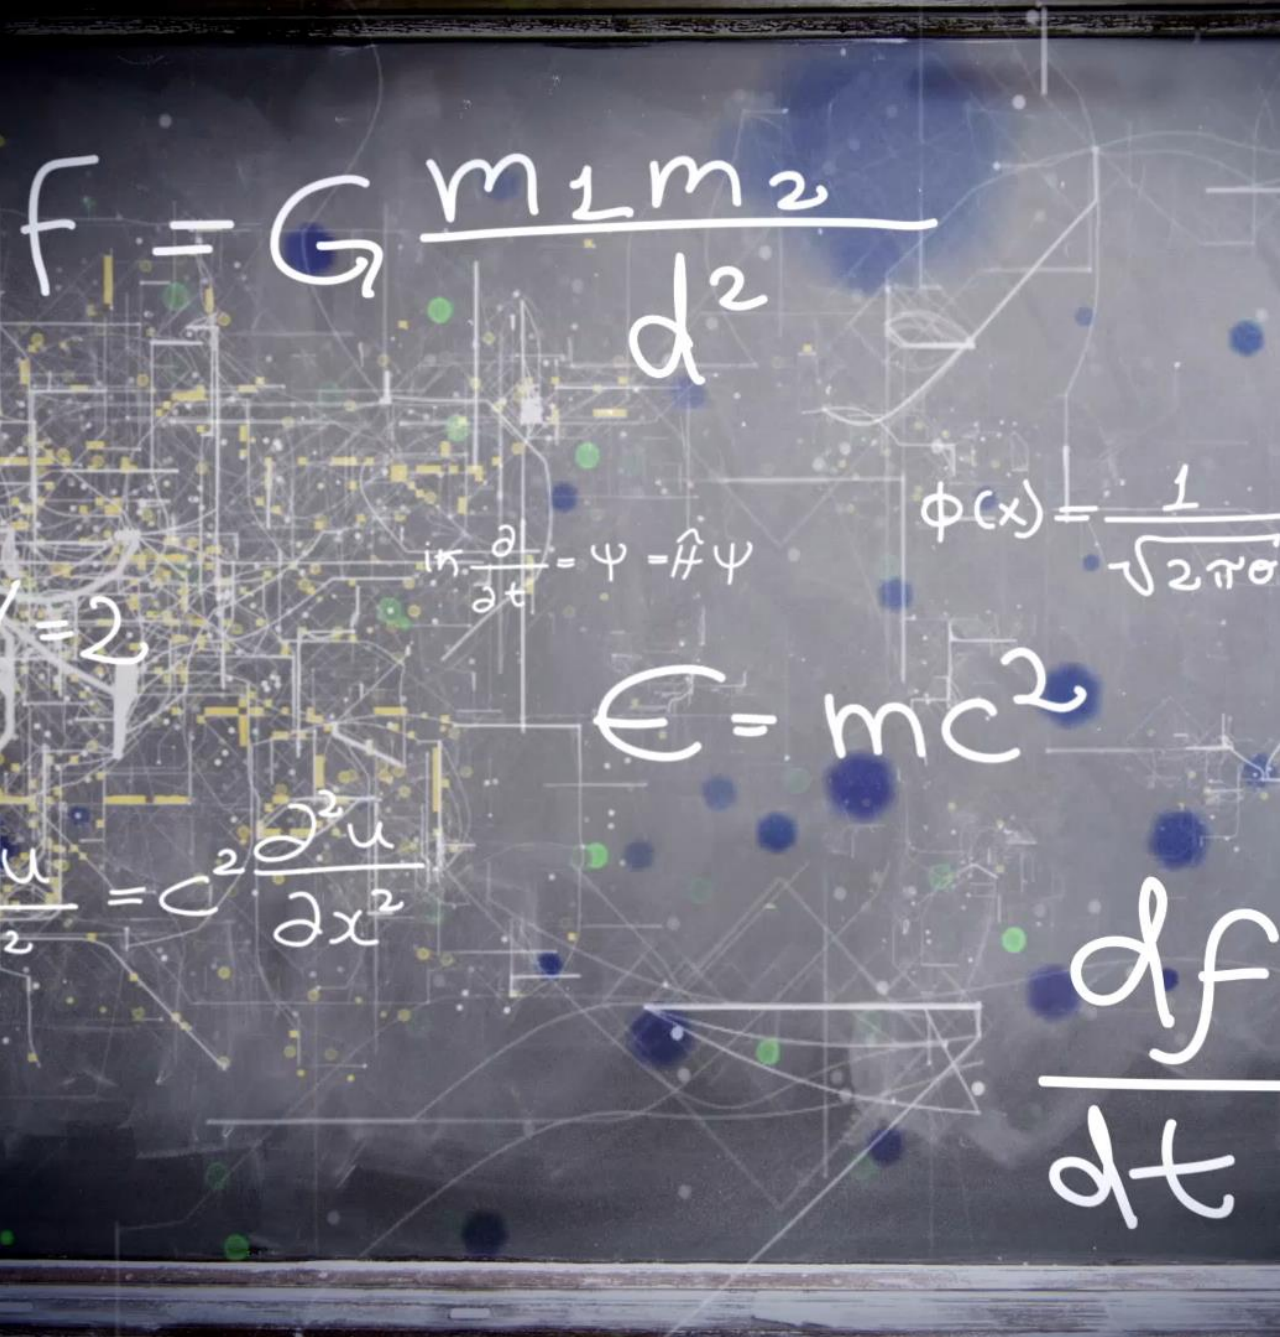 f = G m1m2 / d²
φ(x) = 1 / √2πσ
iħ ∂/∂t = ψ = Ĥψ
= 2
E = mc²
u / 2 = c² ∂²u / ∂x²
df / dt